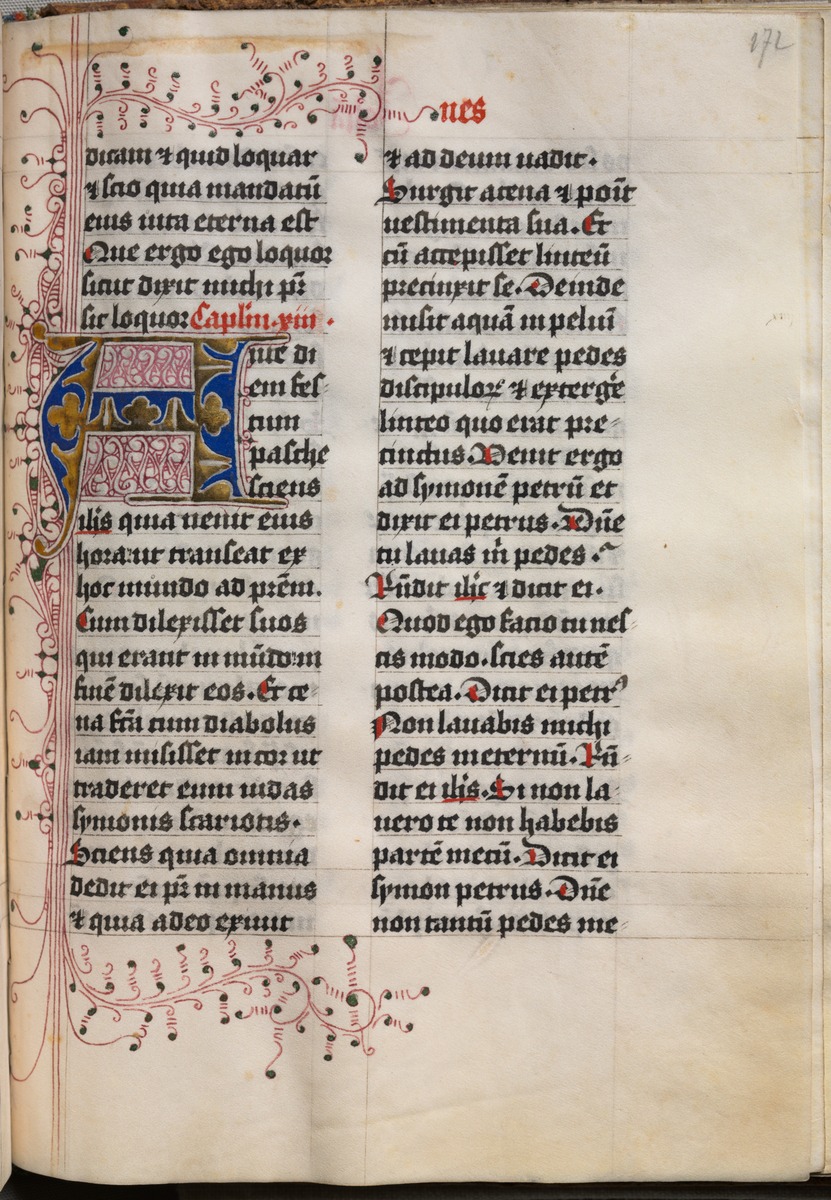 172
nes
dicam ⁊ quid loquar
⁊ scio quia mandatū
eius uita eterna est
Que ergo ego loquor
sicut dixit michi pr̄
sic loquor Caplm̄ .xiii .
Ante di
em fes-
tum
pasche
sciens
ihs̄ quia uenit eius
hora ut transeat ex
hoc mundo ad prēm.
Cum dilexisset suos
qui erant in mūdo in
finē dilexit eos. Et ce-
na fcā cum diabolus
iam misisset in cor ut
traderet eum iudas
symonis scariotis.
Sciens quia omnia
dedit ei pr̄ in manus
⁊ quia a deo exiuit
⁊ ad deum uadit.
Surgit a cena ⁊ poīt
uestimenta sua. Et
cū accepisset linteū
precinxit se. Deinde
misit aquā in peluī
⁊ cepit lauare pedes
discipuloꝝ ⁊ exterge̅
linteo quo erat pre-
cinctus. Venit ergo
ad symonē petrū et
dixit ei petrus. Dn̄e
tu lauas m̄ pedes .
Rn̄dit ihc̄ ⁊ dicit ei.
Quod ego facio tu nes-
cis modo. scies autē
postea. Dicit ei petrꝰ
Non lauabis michi
pedes in eternū. Rn̄-
dit ei ihs̄. Si non la-
uero te non habebis
partē mecū. Dicit ei
symon petrus. Dn̄e
non tantū pedes me-